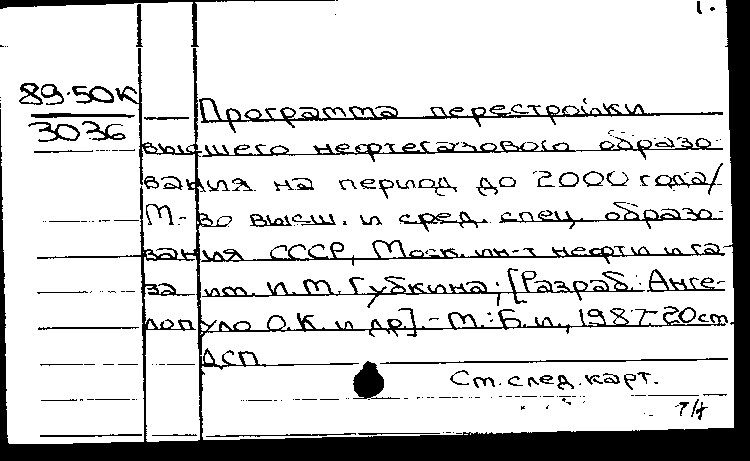 1.
89-50К
3036
Программа перестройки
высшего нефтегазового образо-
вания на период до 2000 года/
М-во высш. и сред. спец. образо-
вания СССР, Моск. ин-т нефти и га-
за им. И.М. Губкина; [Разраб.: Анге-
лопуло О.К. и др]. - М.: Б.и., 1987. 20 ст.
ДСП.
См. след. карт.